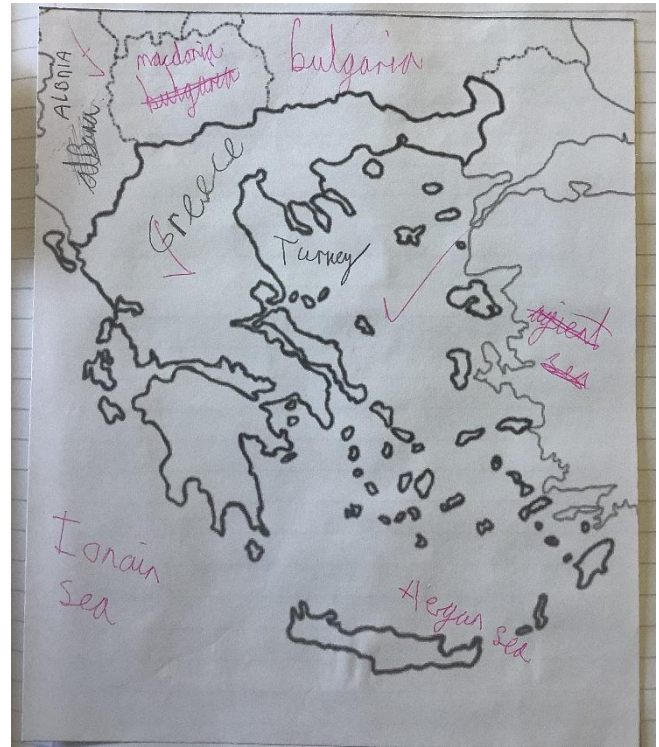 ALBNIA
Albania
macdonia
bulgaria
bulgaria
Greece
Turkey
agient
sea
Ionain
Sea
Aergan
sea